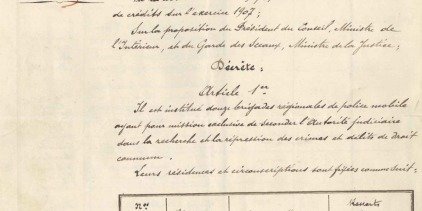 de crédits sur l'exercice 1907;
Sur la proposition du Président du Conseil, Ministre de
l'Intérieur, et du Garde des Sceaux, Ministre de la Justice;
Décrète:
Article 1er
Il est institué douze brigades régionales de police mobile
ayant pour mission exclusive de seconder l'Autorité judiciaire
dans la recherche et la répression des crimes et délits de droit
commun.
Leurs résidences et circonscriptions sont fixées comme suit:
Nos Ressorts